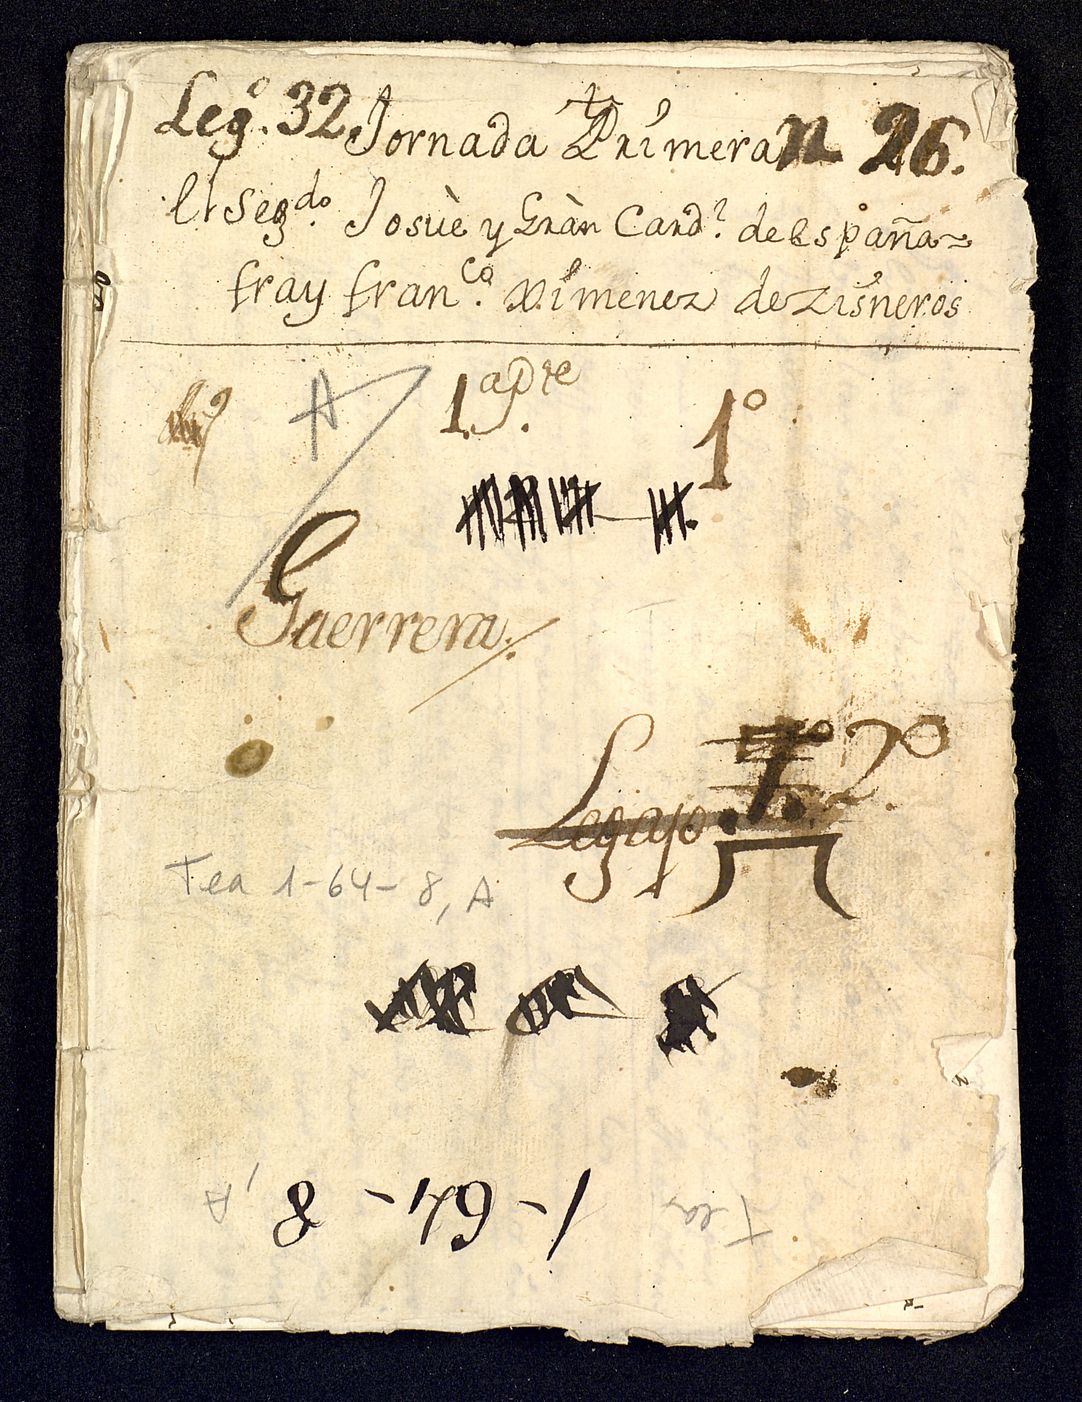 Leg.º 32 Jornada Primera n 26.
El Seg.do Josuè y Gràn Card.l de España~
fray fran.co Ximenez de Zisneros
A
1.a p.te
1º
Guerrera.
Legajo. 7.º 2º
Tea 1-64-8, A
Tea 1-64-8, A